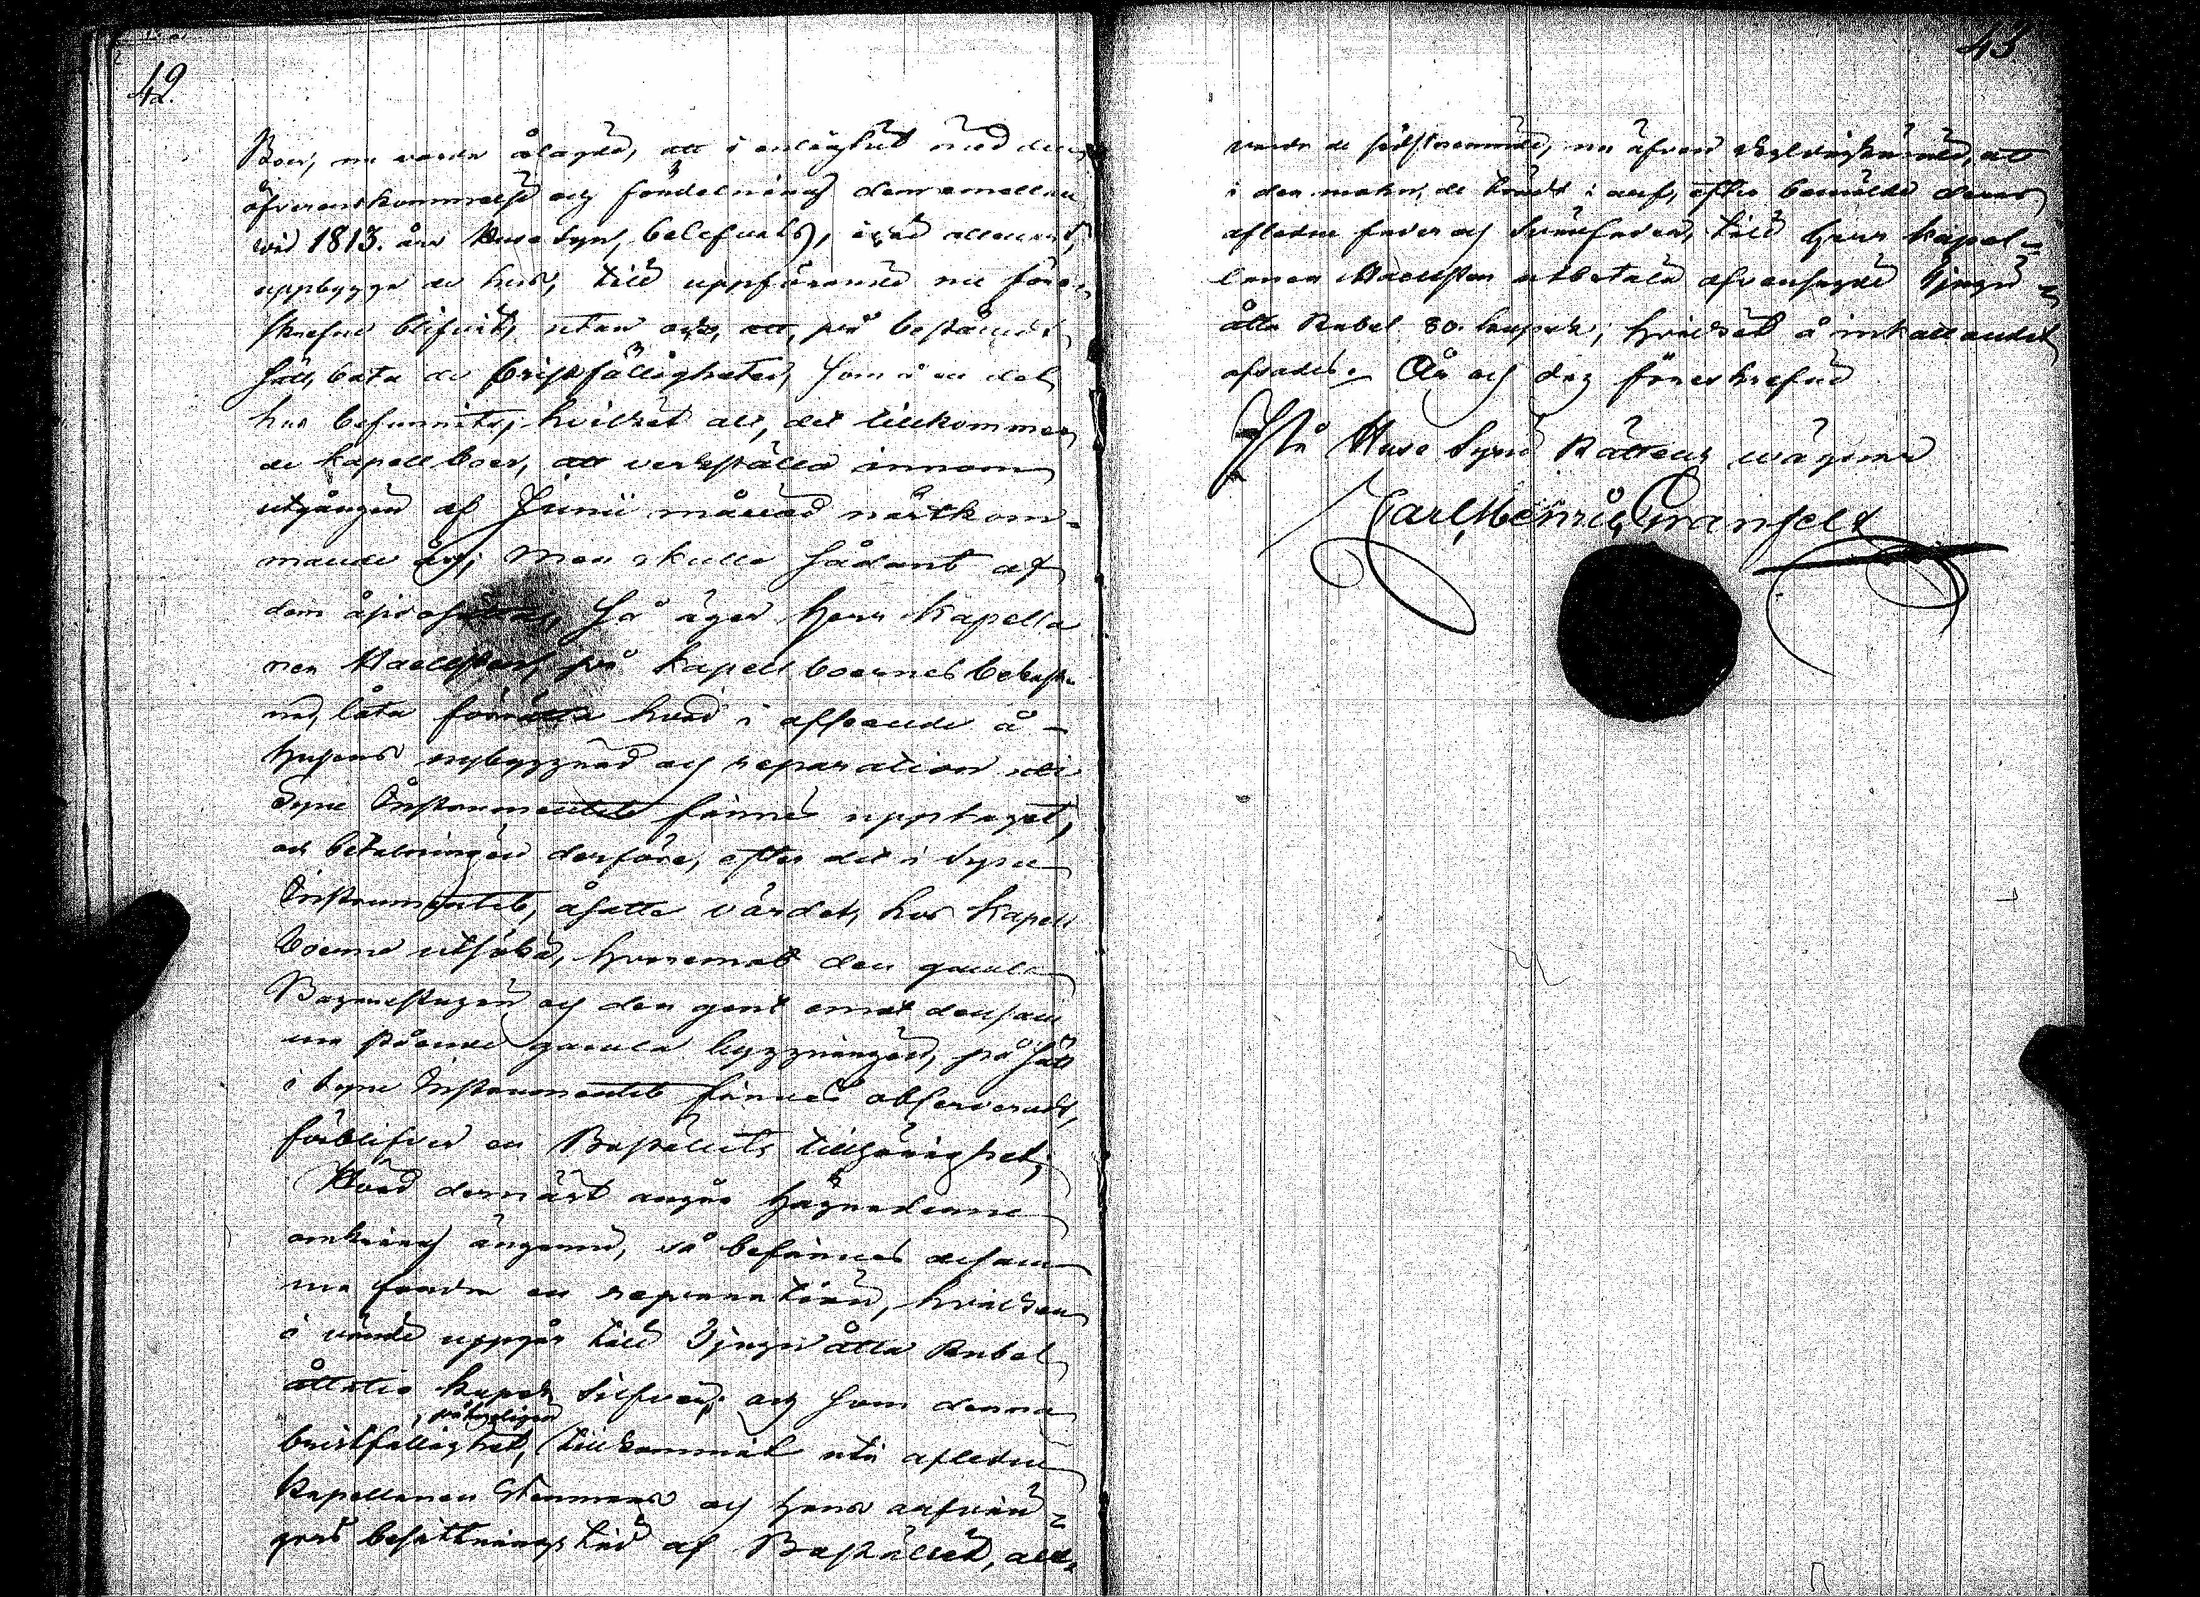 42.
Boer, nu varda ålagde, att i enlighet med den
öfverenskommelse och fördelning dem emellan
wid 1813. års Huse Syn, belefvats, icke allenast
uppbygga de hus, till uppförande nu före-
skrefne blifvit, utan ock, att, på bestämdt
sätt, bota de bristfälligheter, som å en del
hus befunnits, hvilket allt, det tillkommer
de kapellboer, att verkställa innom
utgången af Junii månad nästkom-
mande år; Men skulle sådant af
dem åsidosättas, så äger Herr Kapella
nen Maellsten, på kapellboernes bekost-
nad, låta förrätta hvad i afseende å
husens nybyggnad och reparation uti
Syne Instrumentet finnes upptaget,
och betalningen derföre, efter det i Syne
Instrumentet, åsatte värdet, hos Kapell
boerne utsöka, hvaremot den gamla
Bagarestugan och den gent emot densam
ma stående gamla byggningen, på sätt
i Syne Instrumentet finnes observeradt,
förblifver en Boställets tillhörighet;
Hvad dernäst angår Hägnaderne
omkring ängarne, så befinnes desam
ma fordra en reparation, hvilken
i värde uppgår till Tjugu åtta Rubel
åttatio kopek Silfver; och som denna
bristfällighet, påtageligen tillkommit uti afledne
Kapellanen Stenmans och Hans arfvin-
gars besittningstid af Bostället, allt-
43
varda de sistbenämnde, nu äfven skyldigkände, att
i den mohn, de trädt i arf, efter bemälte deras
afledne fader och Svärfader, till Herr kapel-
lanen Maellsten utbetala ofvansagde Tjugu
åtta Rubel 80. kopek; hvilket å inkallandet
afsades. År och dag föreskrefne
På Huse Syns Rättens wägnar
Carl Henric Granfelt